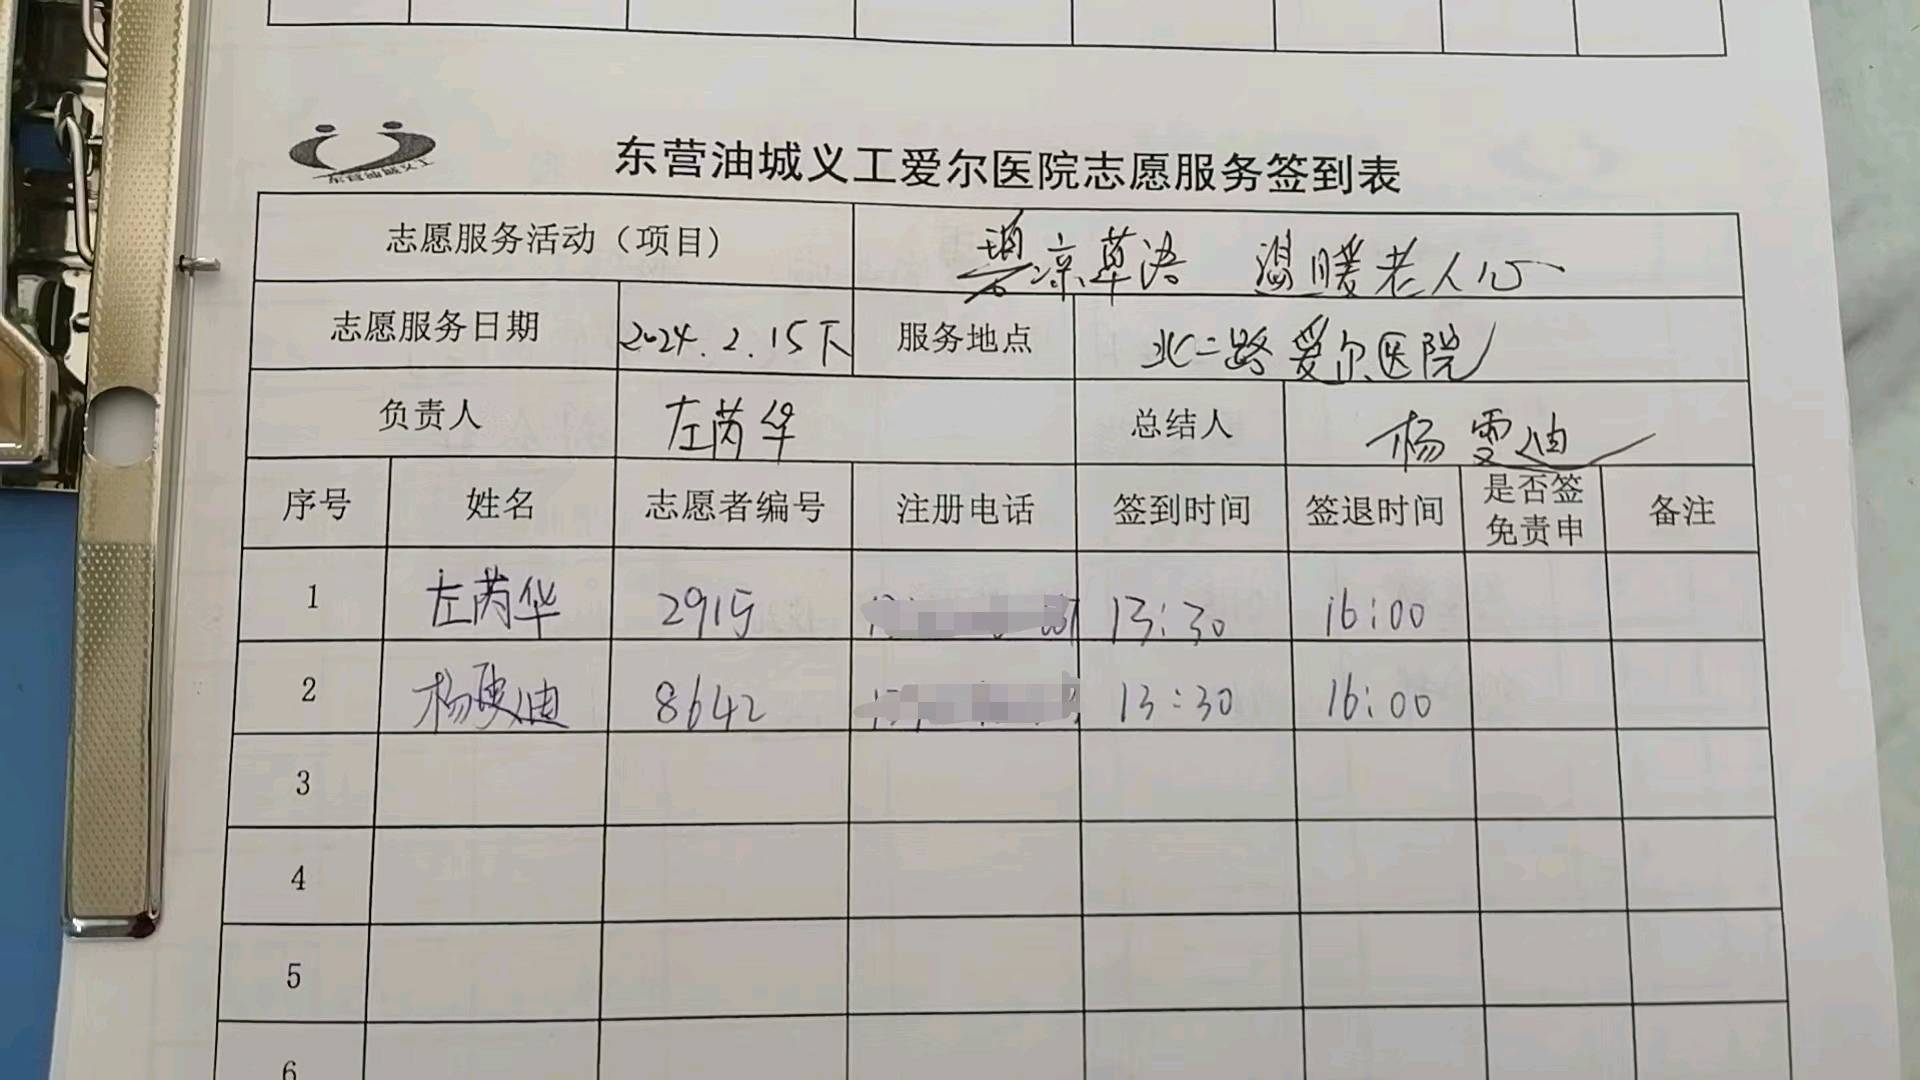 东营油城义工
东营油城义工爱尔医院志愿服务签到表
志愿服务活动（项目） 碧凉草语 温暖老人心
志愿服务日期 2024.2.15下 服务地点 北二路爱尔医院
负责人 左芮华 总结人 杨雯迪
序号 姓名 志愿者编号 注册电话 签到时间 签退时间 是否签免责申 备注
1 左芮华 2915 13:30 16:00
2 杨雯迪 8642 13:30 16:00
3
4
5
6